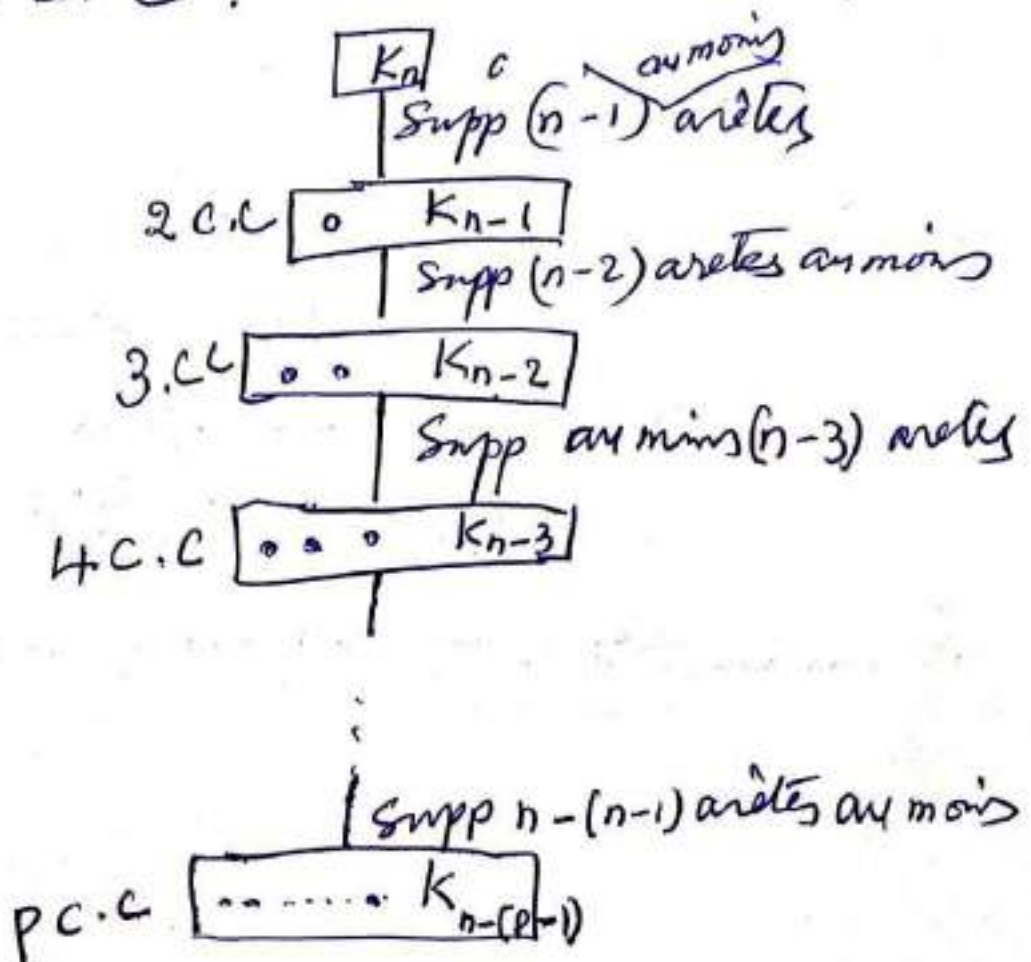 Kn
au moins
Supp (n-1) arêtes
2 C.C Kn-1
Supp (n-2) aretes au moins
3.CC Kn-2
Supp au moins (n-3) aretes
4.C.C Kn-3
Supp n-(n-1) arêtes au moins
p C.C ........ K n-(p-1)